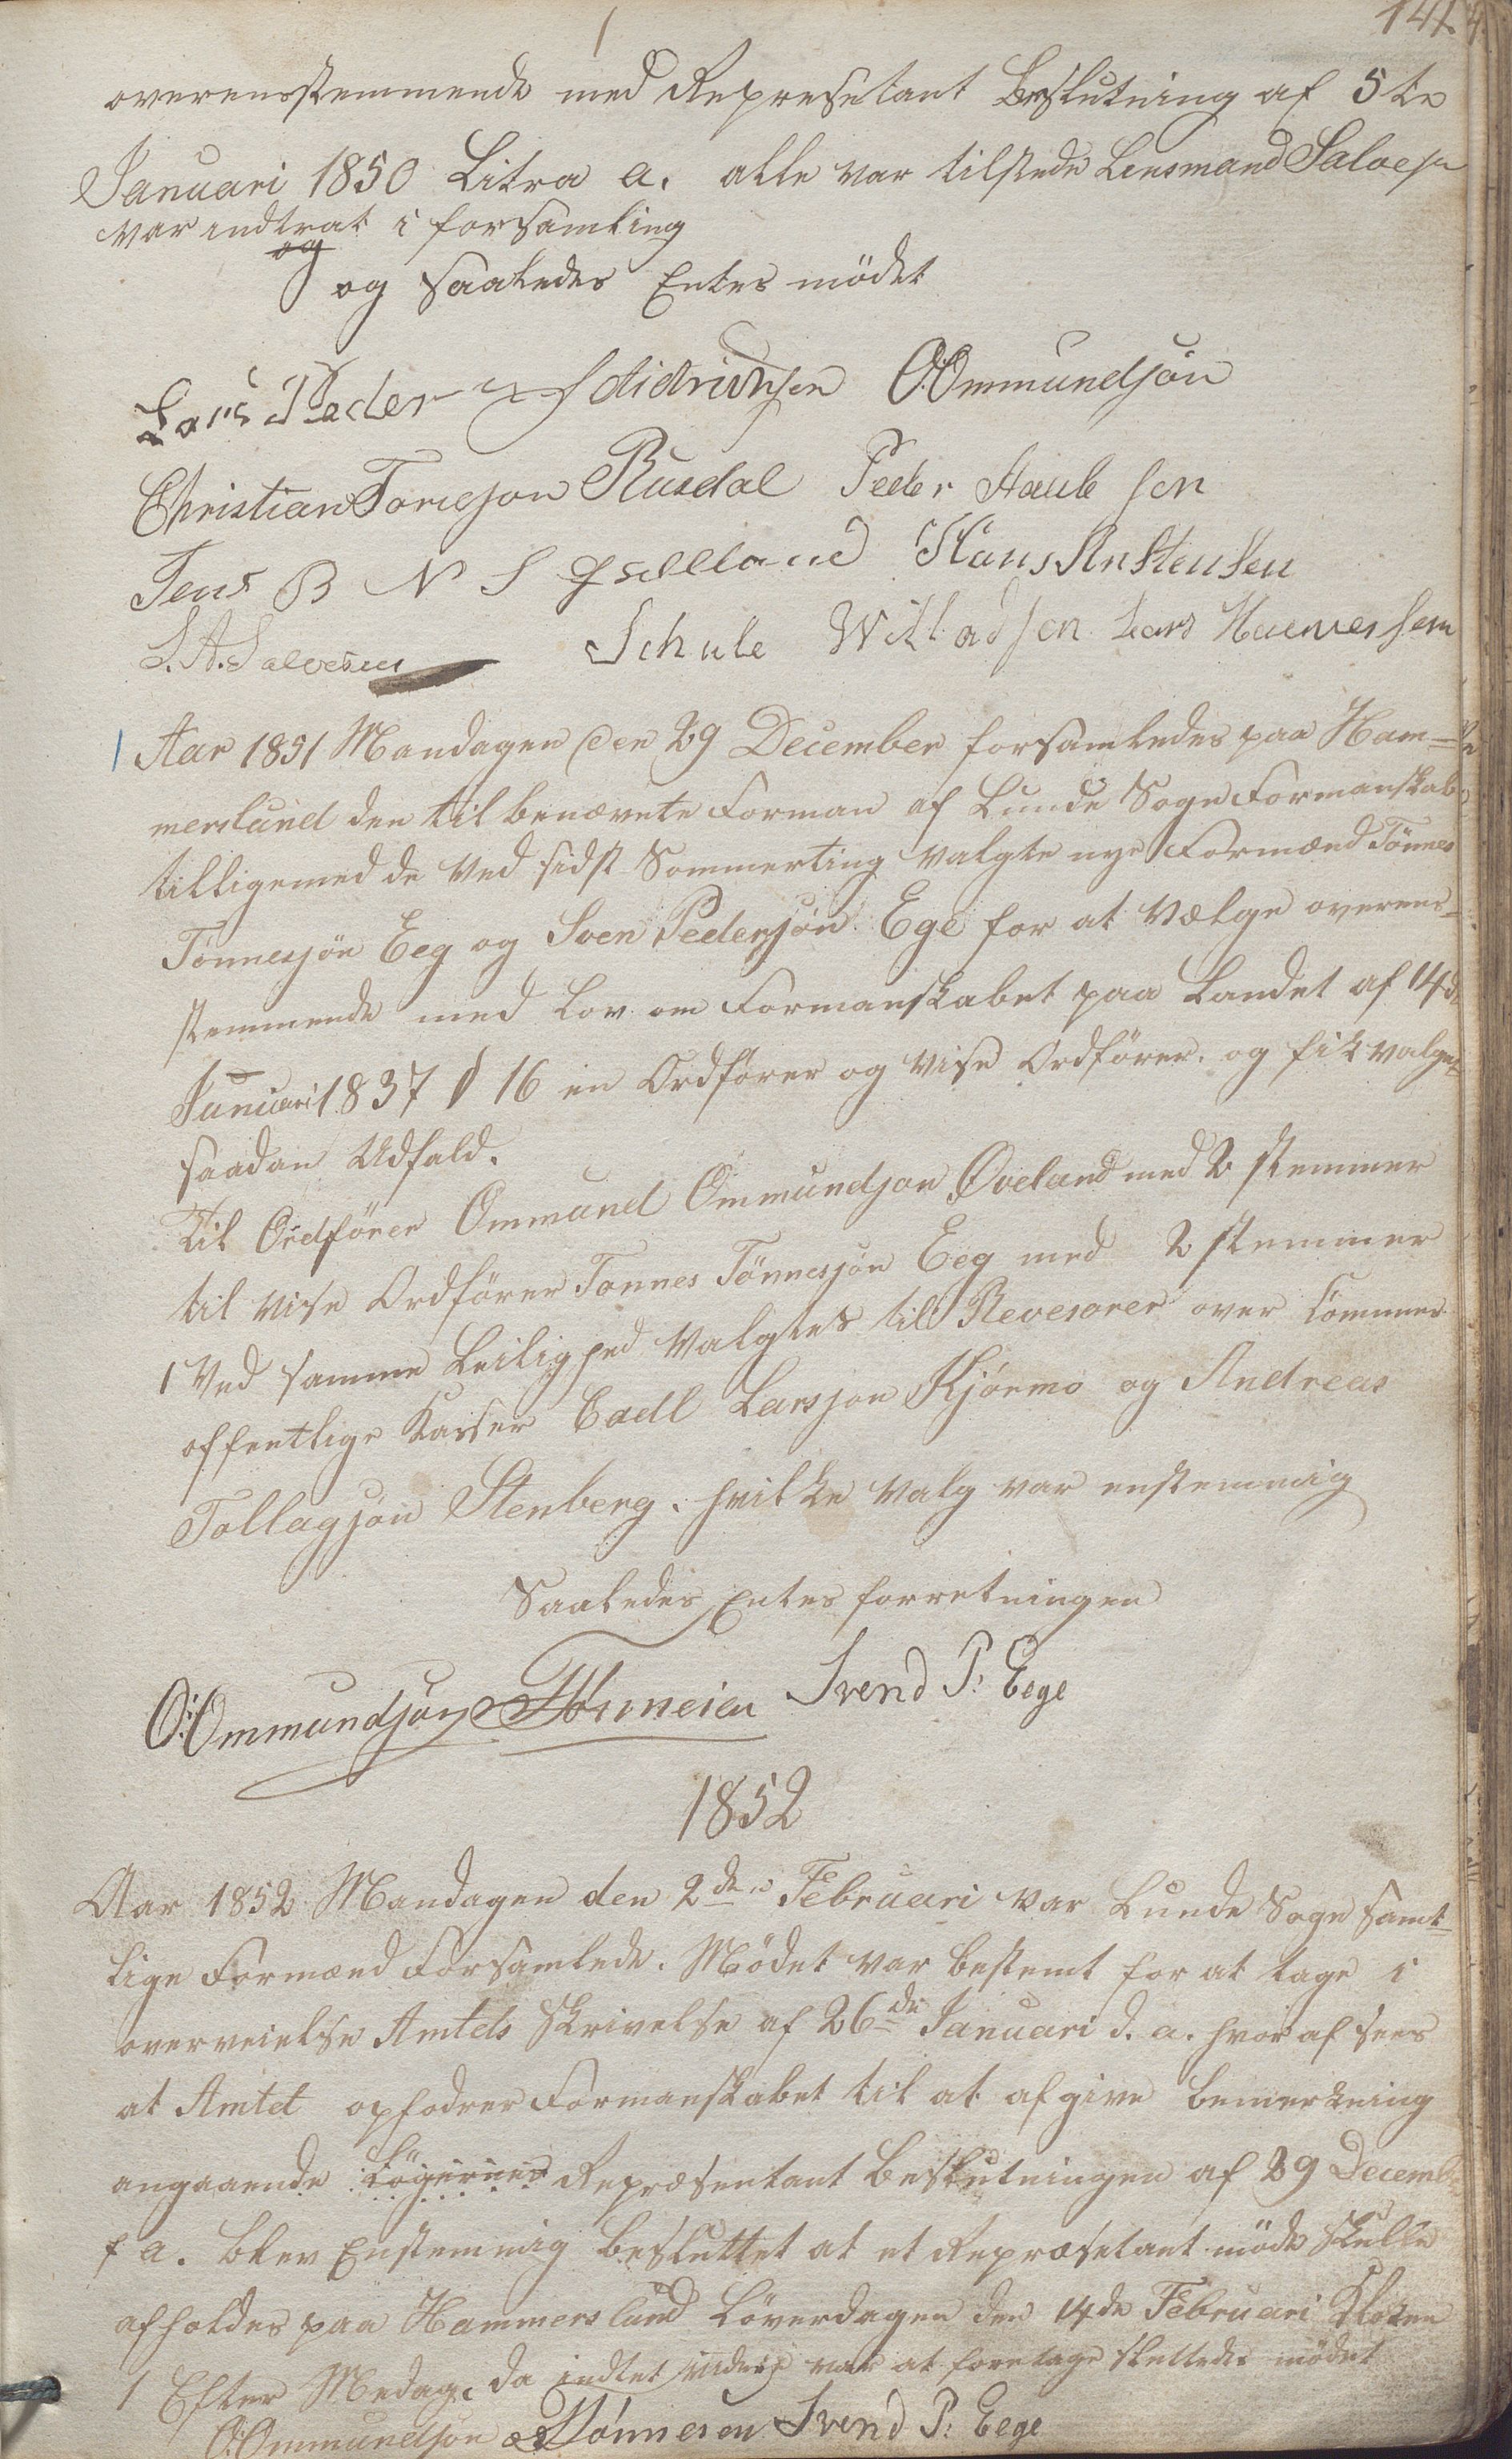 141.
overensstemmende med Represetant Beslutning af 5te
Januari 1850 Litra a. alle var tilstede Lensmand Salvesen
var indtrat i forsamling
og
og saaledes Entes mödet
Lars Peder Didrichsen O: Ommundsön
Christian Torgeson Rusdal Peder Haubsen
Jens B N S Gjælland Hans Anstensen
L. A. Salvesen Schule Willadsen Lars
Aar 1851 Mandagen den 29 December forsamledes paa Ham-
merslund den tilbenævnte Forman af Lunde Sogn Formanskab
tilligemed de Ved sidst Sommerting Valgte nye Formænd Tönnes
Tönnesjön Eeg og Sven Pedersjön Ege for at Vælge overens-
stemmende med Lov om Formanskabet paa Landet af 14de
Januari 1837 § 16 en Ordförer og Vise Ordförer. og fik valget
saadan Udfald.
Til Ordförer Ommund Ommundsjon Öveland med 2 stemmer
til Vise Ordförer Tönnes Tönnesjön Eeg med 2 stemmer
1 Ved samme Leilighed Valgtes til Revesorer over Commun
offentlige Kasser Eadl Larsjon Kjörmo og Andreas
Tollagsjön Stenberg. hvilke Valg var enstemmig
Saaledes Entes forretningen
O: Ommundsjön T Tönnesen Svend P: Eege
1852
Aar 1852 Mandagen den 2den Februari var Lunde Sogn samt-
lige Formænd Forsamlede. Mödet var bestemt for at tage i
overveielse Amtets Skrivelse af 26de Januari d. a. hvor af sees
at Amtet opfodrer Formanskabet til at afgive bemerkning
angaaende Repræsentant Beslutningen af 29 Decemb
f a. blev Enstemmig besluttet at et Repræsetant möde Skulle
afholdes paa Hammerslund Löverdagen den 14de Februari Kloken
1 Efter Medag. da indtet videre var at foretage skeltedes mödet
O: Ommundsön T Tönnesen Svend P: Eege